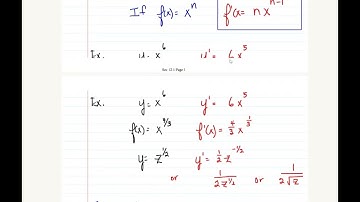 If f(x) = xⁿ f'(x) = n xⁿ⁻¹
Ex. y = x⁶ y' = 6 x⁵
Ex. y = x⁶ y' = 6 x⁵
f(x) = x^(4/3) f'(x) = 4/3 x^(1/3)
y = z^(1/2) y' = 1/2 z^(-1/2)
or 1/(2z^(1/2)) or 1/(2√z)